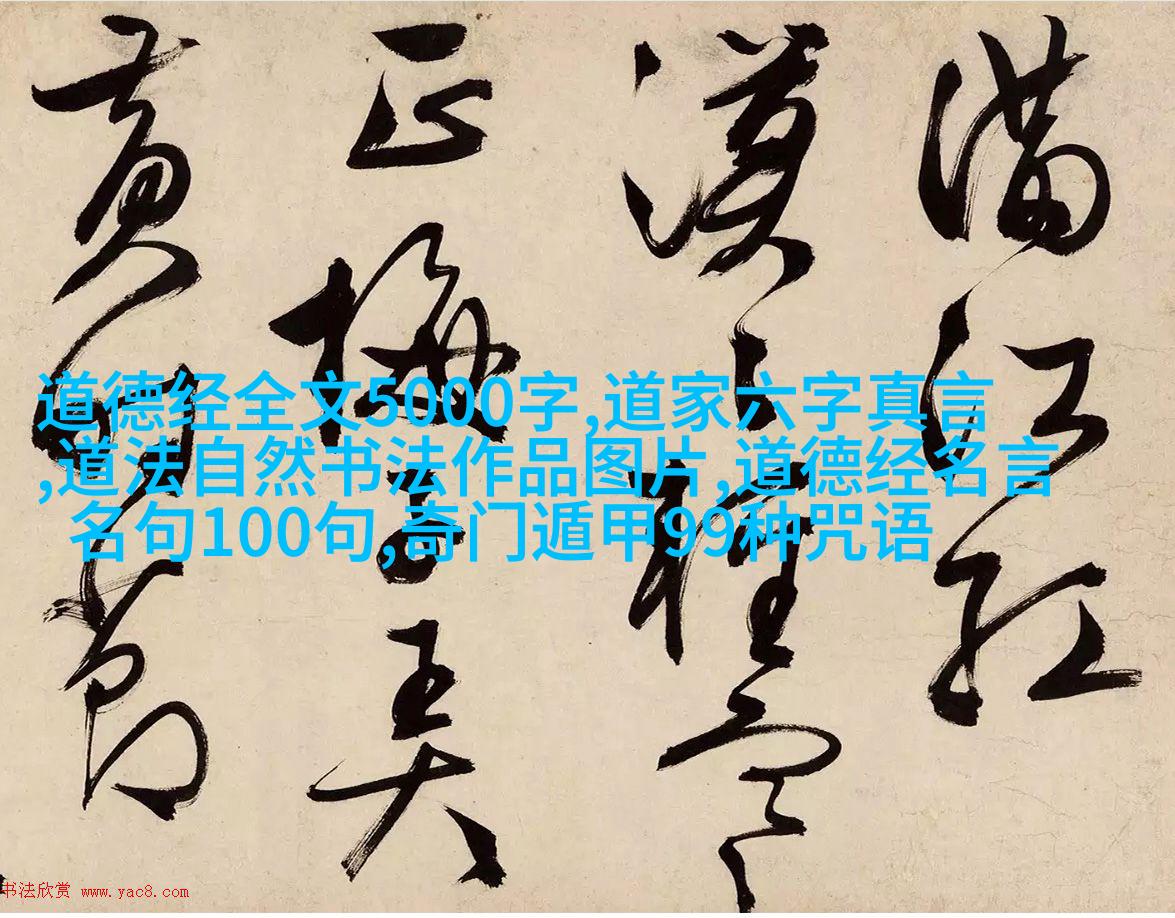 滿江紅
漠〻輕陰
正梅子弄
黃時節
道德经全文5000字,道家六字真言
,道法自然书法作品图片,道德经名言
名句100句,奇门遁甲99种咒语
书法欣赏 www.yac8.com